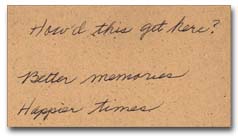 How'd this get here?
Better memories
Happier times